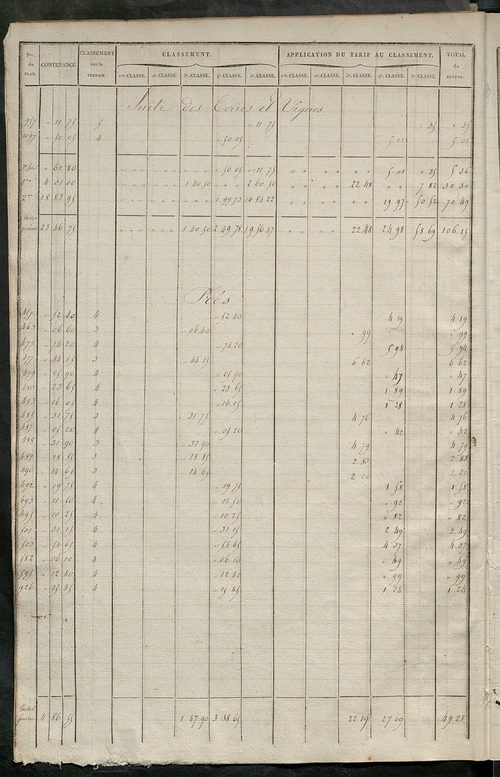 Nos. du PLAN. CONTENANCE. CLASSEMENT sur le TERRAIN CLASSEMENT. APPLICATION DU TARIF AU CLASSEMENT. TOTAL du REVENU.
1re. CLASSE. 2e. CLASSE. 3e. CLASSE. 4e. CLASSE. 5e. CLASSE. 1re. CLASSE. 2e. CLASSE. 3e. CLASSE. 4e. CLASSE. 5e. CLASSE.
Suite des Terres et Vignes
" 11 75 5 " 11 75 " 35 " 35
" 50 05 4 " 50 05 5 01 5 01
" 61 80 " 50 05 " 11 75 5 01 " 35 5 36
4 01 00 1 40 50 " " 2 60 50 22 48 " " 7 82 30 30
18 83 95 1 99 73 16 84 22 19 97 50 52 70 49
23 46 75 1 40 50 2 49 78 19 56 47 22 48 24 98 58 69 106 15
Prés
457 " 52 40 4 " 52 40 4 19 4 19
463 " 06 60 3 " 06 60 " 99 " 99
473 " 74 20 4 " 74 20 5 94 5 94
477 " 44 15 3 " 44 15 6 62 6 62
479 " 05 90 4 " 05 90 " 47 " 47
480 " 23 65 4 " 23 65 1 89 1 89
483 " 16 05 4 " 16 05 1 28 1 28
485 " 31 75 3 " 31 75 4 76 4 76
487 " 05 20 4 " 05 20 " 42 " 42
488 " 31 90 3 " 31 90 4 79 4 79
489 " 18 85 3 " 18 85 2 83 2 83
490 " 14 65 3 " 14 65 2 20 2 20
492 " 19 75 4 " 19 75 1 58 1 58
493 " 11 50 4 " 11 50 " 92 " 92
495 " 10 25 4 " 10 25 " 82 " 82
501 " 31 15 4 " 31 15 2 49 2 49
503 " 54 65 4 " 54 65 4 37 4 37
582 " 06 10 4 " 06 10 " 49 " 49
595 " 12 40 4 " 12 40 " 99 " 99
926 " 15 45 4 " 15 45 1 24 1 24
4 86 55 1 47 90 3 38 65 22 19 27 09 49 28